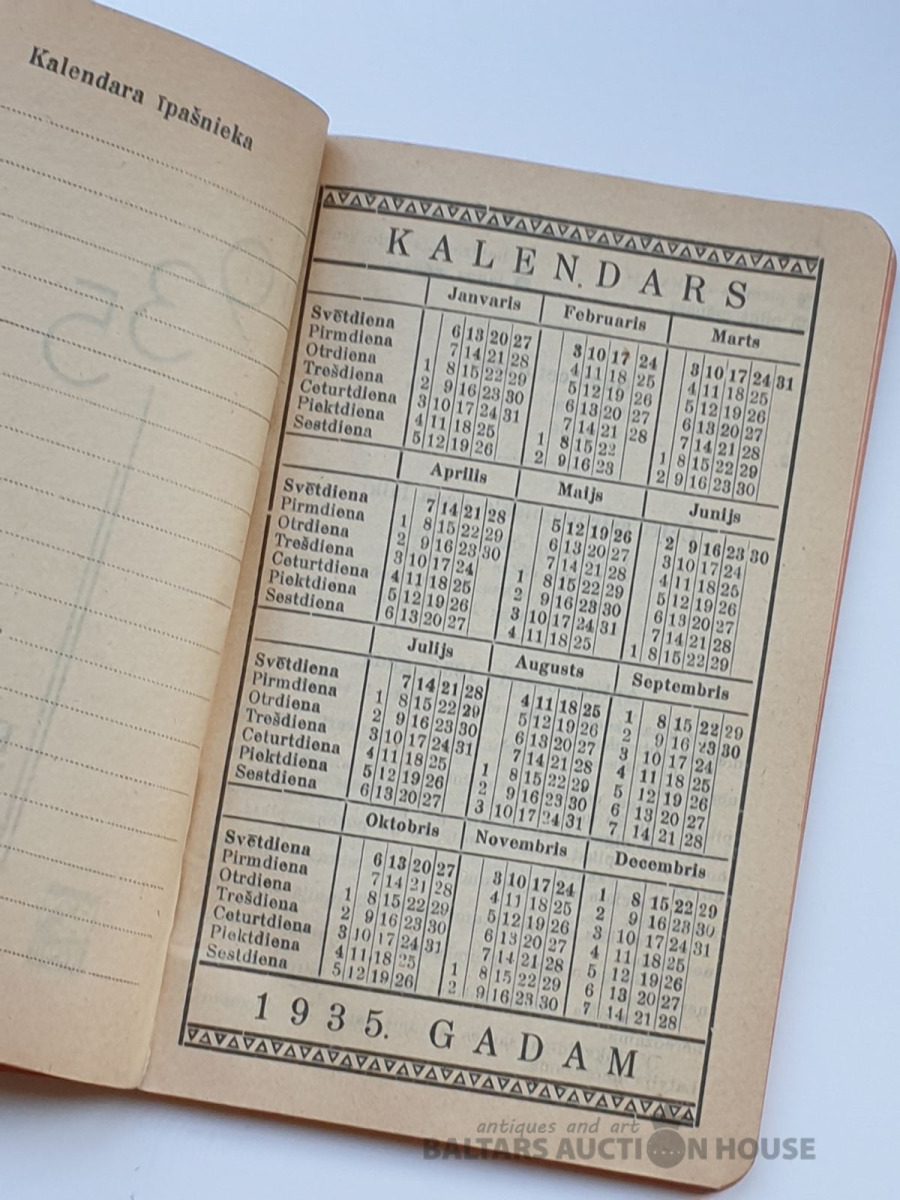 Kalendara īpašnieka
935
KALENDARS
Janvaris Februaris Marts
Svētdiena 6 13 20 27 3 10 17 24 3 10 17 24 31
Pirmdiena 7 14 21 28 4 11 18 25 4 11 18 25
Otrdiena 1 8 15 22 29 5 12 19 26 5 12 19 26
Trešdiena 2 9 16 23 30 6 13 20 27 6 13 20 27
Ceturtdiena 3 10 17 24 31 7 14 21 28 7 14 21 28
Piektdiena 4 11 18 25 1 8 15 22 1 8 15 22 29
Sestdiena 5 12 19 26 2 9 16 23 2 9 16 23 30
Aprilis Maijs Junijs
Svētdiena 7 14 21 28 5 12 19 26 2 9 16 23 30
Pirmdiena 1 8 15 22 29 6 13 20 27 3 10 17 24
Otrdiena 2 9 16 23 30 7 14 21 28 4 11 18 25
Trešdiena 3 10 17 24 1 8 15 22 29 5 12 19 26
Ceturtdiena 4 11 18 25 2 9 16 23 30 6 13 20 27
Piektdiena 5 12 19 26 3 10 17 24 31 7 14 21 28
Sestdiena 6 13 20 27 4 11 18 25 1 8 15 22 29
Julijs Augusts Septembris
Svētdiena 7 14 21 28 4 11 18 25 1 8 15 22 29
Pirmdiena 1 8 15 22 29 5 12 19 26 2 9 16 23 30
Otrdiena 2 9 16 23 30 6 13 20 27 3 10 17 24
Trešdiena 3 10 17 24 31 7 14 21 28 4 11 18 25
Ceturtdiena 4 11 18 25 1 8 15 22 29 5 12 19 26
Piektdiena 5 12 19 26 2 9 16 23 30 6 13 20 27
Sestdiena 6 13 20 27 3 10 17 24 31 7 14 21 28
Oktobris Novembris Decembris
Svētdiena 6 13 20 27 3 10 17 24 1 8 15 22 29
Pirmdiena 7 14 21 28 4 11 18 25 2 9 16 23 30
Otrdiena 1 8 15 22 29 5 12 19 26 3 10 17 24 31
Trešdiena 2 9 16 23 30 6 13 20 27 4 11 18 25
Ceturtdiena 3 10 17 24 31 7 14 21 28 5 12 19 26
Piektdiena 4 11 18 25 1 8 15 22 29 6 13 20 27
Sestdiena 5 12 19 26 2 9 16 23 30 7 14 21 28
1935. GADAM
antiques and art
BALTARS AUCTION HOUSE